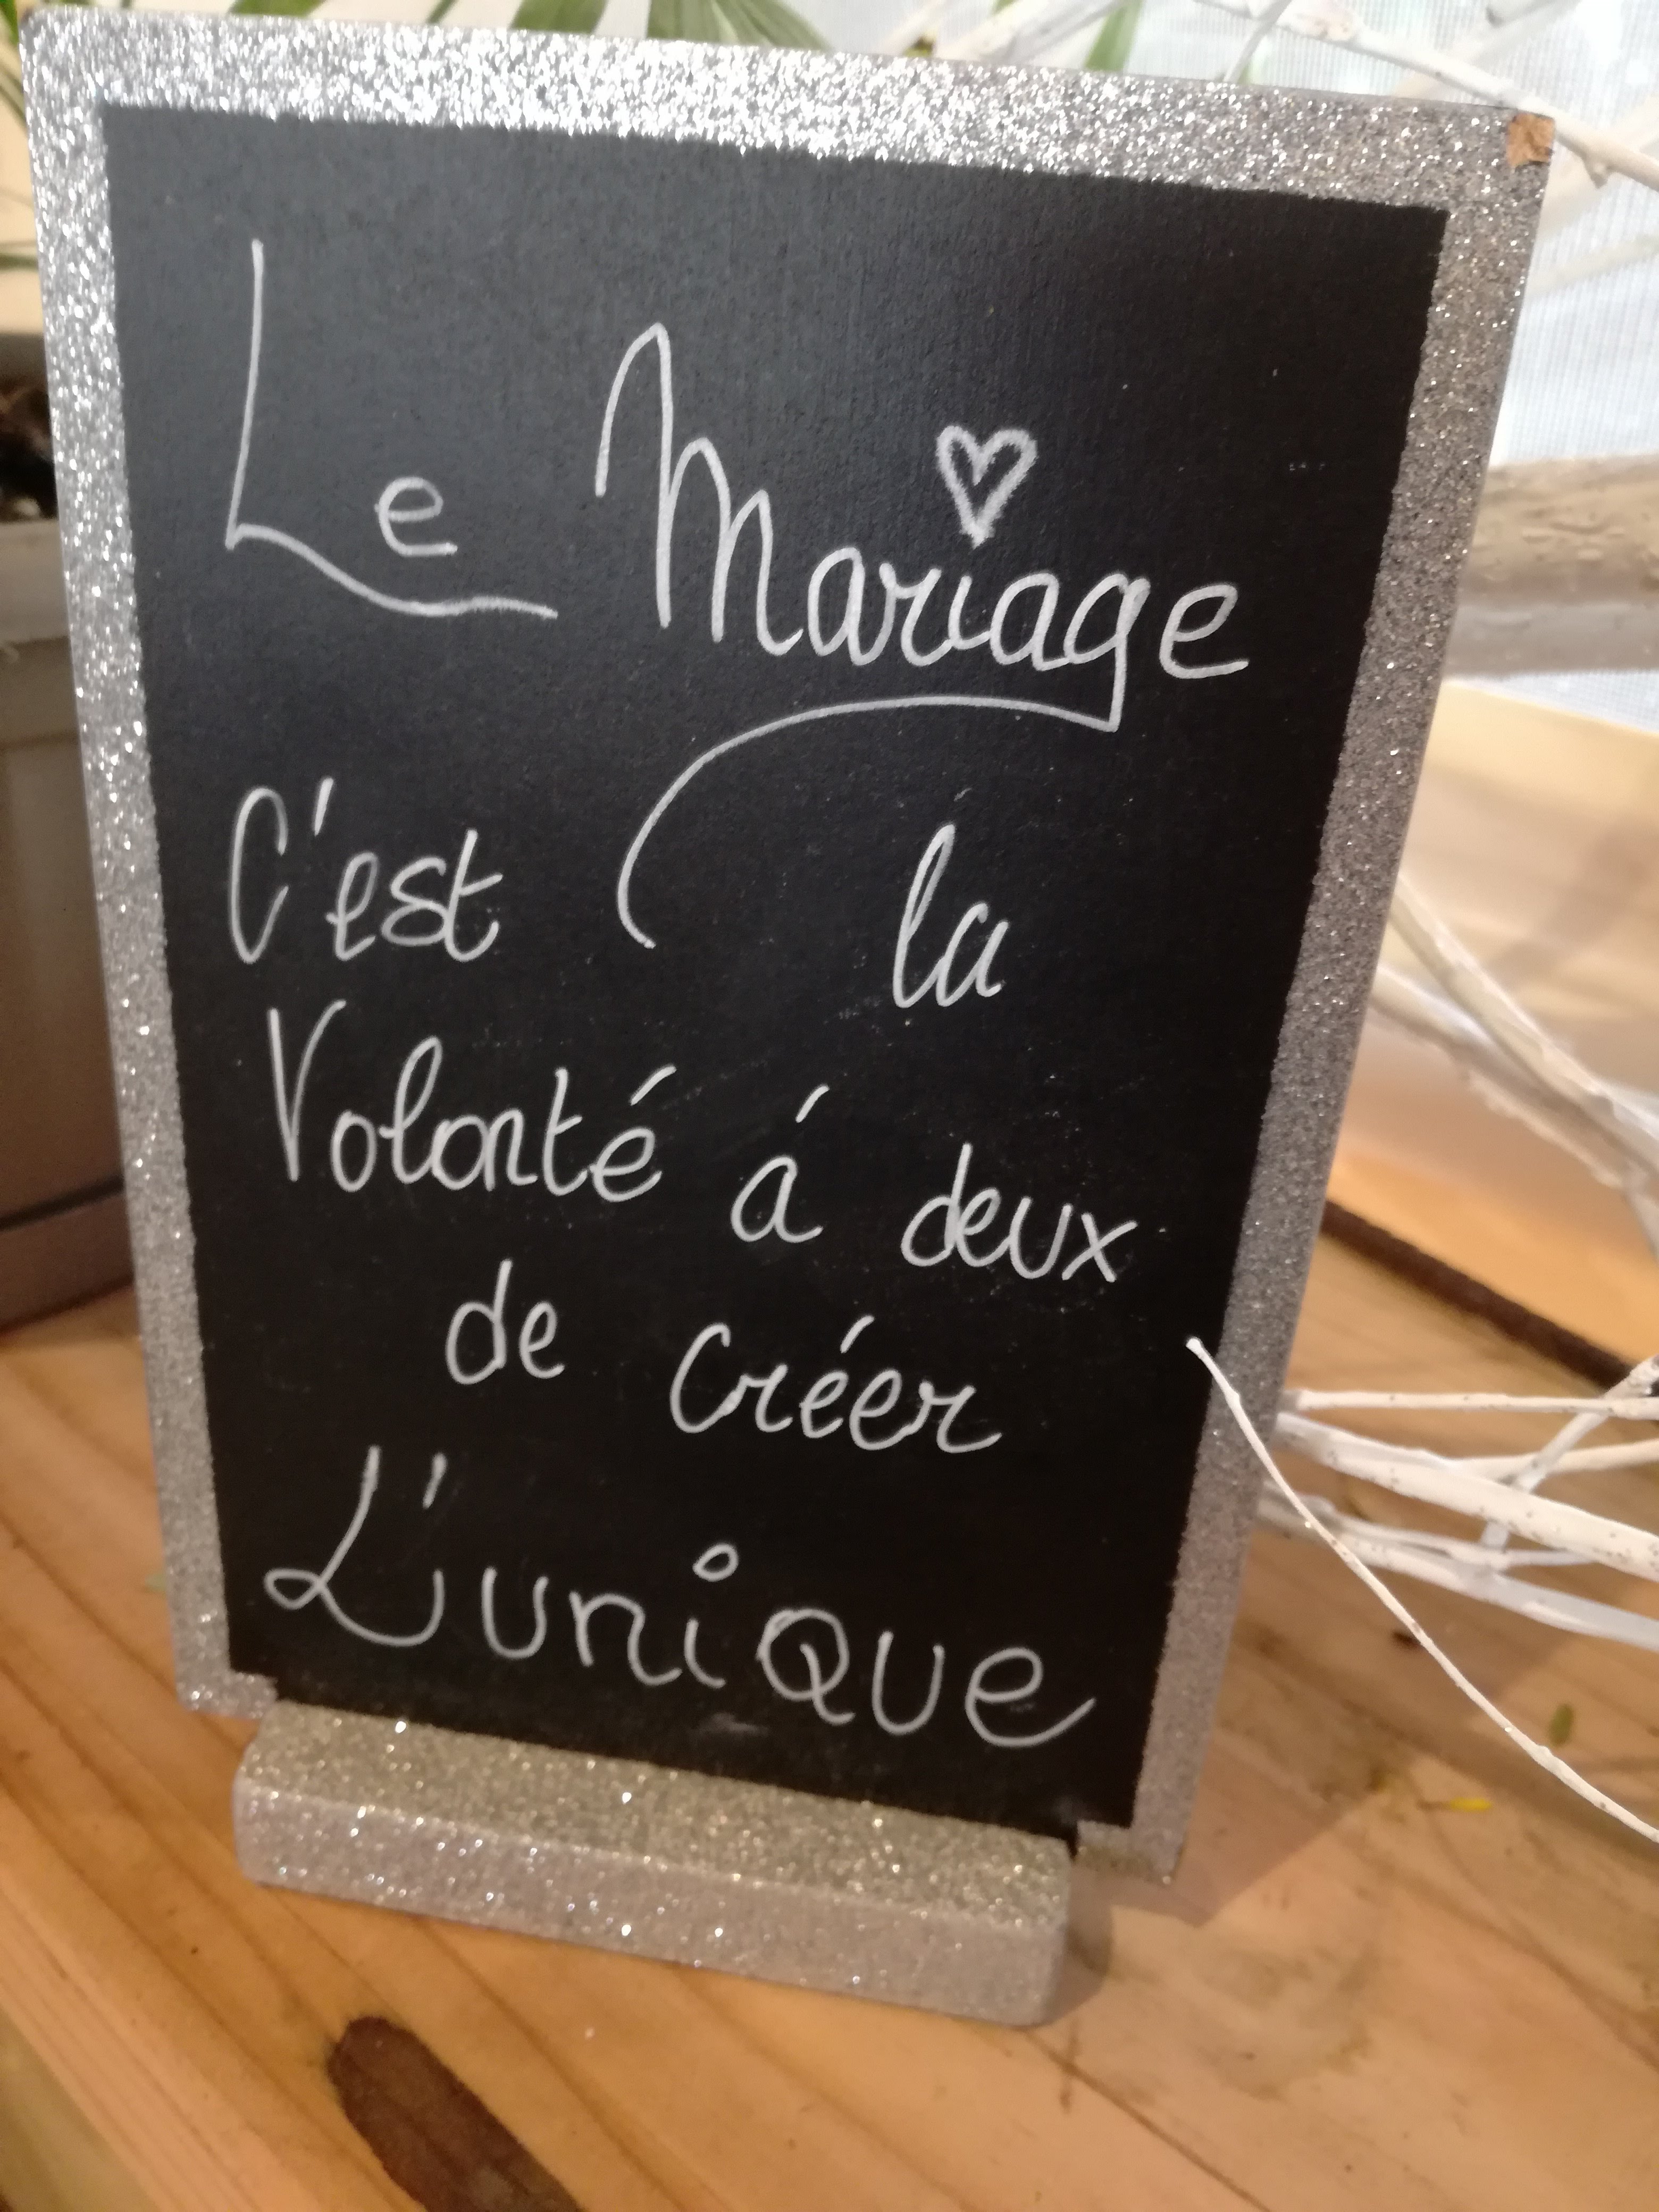 Le Mariage
C'est la
Volonté á deux
de Créer
L'uniQue